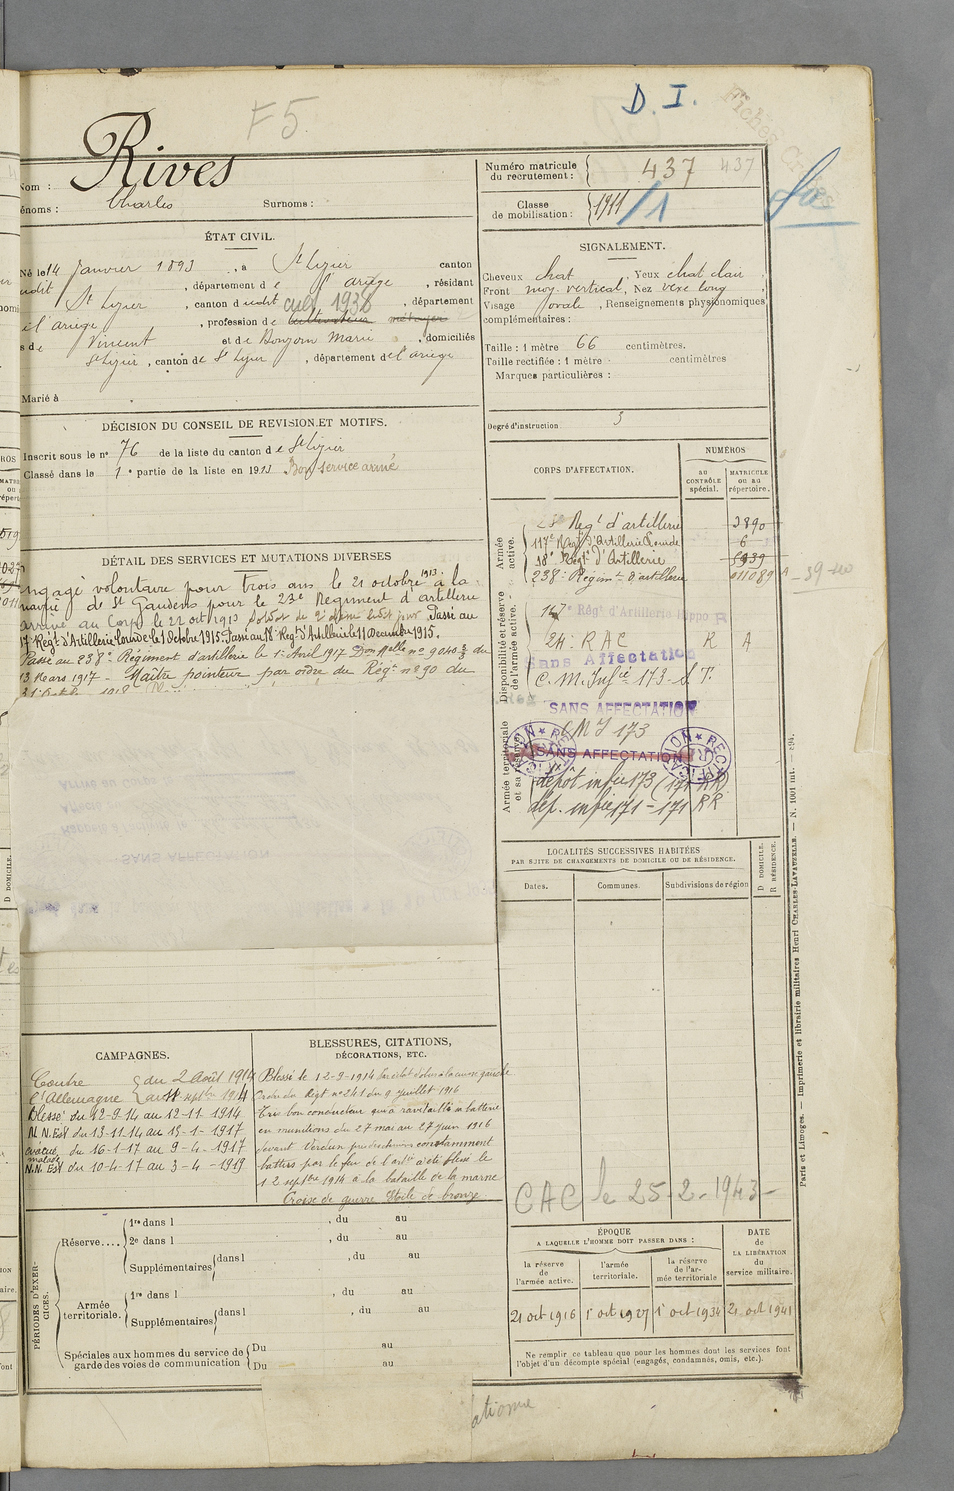 D. I.
F5
Fiches
Nom : Rives
énoms : Charles Surnoms :
Numéro matricule du recrutement : 437 437
Classe de mobilisation : 1911 /1
ÉTAT CIVIL.
Né le 14 Janvier 1893, à St Lizier canton
udit, département de l'ariège, résidant
St Lizier, canton dudit cult 1938, département
de l'ariège, profession de cultivateur métayer
s de Vincent et de Bonzom Marie, domiciliés
St Lizier, canton de St Lizier, département de l'ariège
Marié à
SIGNALEMENT.
Cheveux chat, Yeux chat clair,
Front moy. vertical, Nez vexe long,
Visage ovale, Renseignements physionomiques
complémentaires :
Taille : 1 mètre 66 centimètres.
Taille rectifiée : 1 mètre centimètres
Marques particulières :
Degré d'instruction 3
DÉCISION DU CONSEIL DE REVISION ET MOTIFS.
Inscrit sous le n° 76 de la liste du canton de St Lizier
Classé dans le 1e partie de la liste en 1913 Bon service armé
DÉTAIL DES SERVICES ET MUTATIONS DIVERSES
ngagé volontaire pour trois ans le 21 octobre 1913 à la
mairie de St Gaudens pour le 23e Régiment d'artillerie
arrivé au Corps le 22 oct 1913 Soldat de 2e classe ledit jour. Passé au
17e Régt d'Artillerie Lourde le 1 Octobre 1915. Passé au 18e Régt d'Artillerie le 11 Decembre 1915.
Passé au 238e Régiment d'artillerie le 1er Avril 1917 Don Melle n° 9040 3/3 du
13 Mars 1917 - Maître pointeur par ordre du Régt n° 90 du
CORPS D'AFFECTATION.
NUMÉROS
AU CONTRÔLE spécial.
MATRICULE OU AU répertoire.
Armée active.
Regt d'artillerie 2890
117e Regt d'Artillerie Lourde 6
18e Régt d'Artillerie 5939
238e Régimt d'artillerie 011089
39-40
Disponibilité et réserve de l'armée active.
Régt d'Artillerie Hippo R
24e R A C R A
Sans Affectation
C. M. Infie 173 - S. T.
SANS AFFECTATION
Armée territoriale et sa réserve
CMI 173
SANS AFFECTATION
RECTIFICATION
dépôt infie 173 (171 RR)
dep. infie 171 - 171 RR
Arrivé au Corps le
Rappelé à l'activité le
SANS AFFECTATION
LOCALITÉS SUCCESSIVES HABITÉES
PAR SUITE DE CHANGEMENTS DE DOMICILE OU DE RÉSIDENCE.
Dates. Communes. Subdivisions de région
D DOMICILE.
R RÉSIDENCE.
CAMPAGNES.
Contre l'Allemagne du 2 Août 1914 au 11 septbre 1914
Blessé du 12-9-14 au 12-11-1914
N. N. Est du 13-11-14 au 15-1-1917
évacué malade du 16-1-17 au 9-4-1917
N.N. Est du 10-4-17 au 3-4-1919
BLESSURES, CITATIONS,
DÉCORATIONS, ETC.
Blessé le 12-9-1914 par éclat d'obus à la main gauche
Ordre du Régt n° 241 du 9 juillet 1916
Très bon conducteur qui a ravitaillé sa batterie
en munitions du 27 mai au 27 juin 1916
devant Verdun par des chemins constamment
battus par le feu de l'artie a été blessé le
12 septbre 1914 à la bataille de la marne
Croix de guerre Etoile de bronze
CAC le 25-2-1943-
PÉRIODES D'EXERCICES.
Réserve.... 1re dans l , du au
2e dans l , du au
Supplémentaires dans l , du au
Armée territoriale. 1re dans l , du au
Supplémentaires dans l , du au
Spéciales aux hommes du service de garde des voies de communication Du au
Du au
ÉPOQUE
A LAQUELLE L'HOMME DOIT PASSER DANS :
DATE de LA LIBÉRATION du service militaire.
la réserve de l'armée active.
l'armée territoriale.
la réserve de l'armée territoriale
21 oct 1916 1er oct 1927 1er oct 1934 21 oct 1941
Ne remplir ce tableau que pour les hommes dont les services font
l'objet d'un décompte spécial (engagés, condamnés, omis, etc.).
Paris et Limoges. — Imprimerie et librairie militaires Henri CHARLES-LAVAUZELLE. — N. 1001 int.